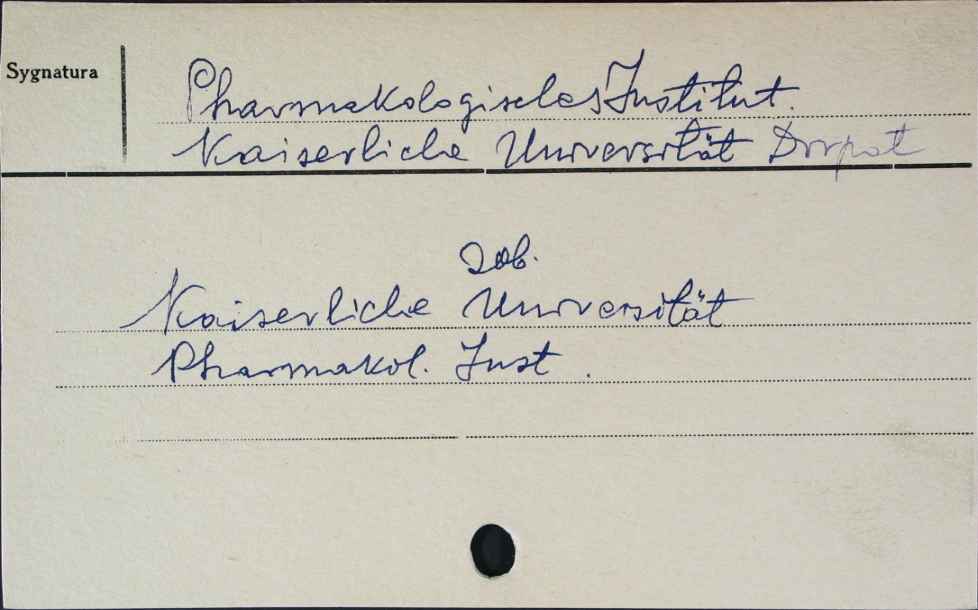 Sygnatura
Pharmakologisches Institut.
Kaiserliche Universität Dorpat
zob.
Kaiserliche Universität
Pharmakol. Inst.